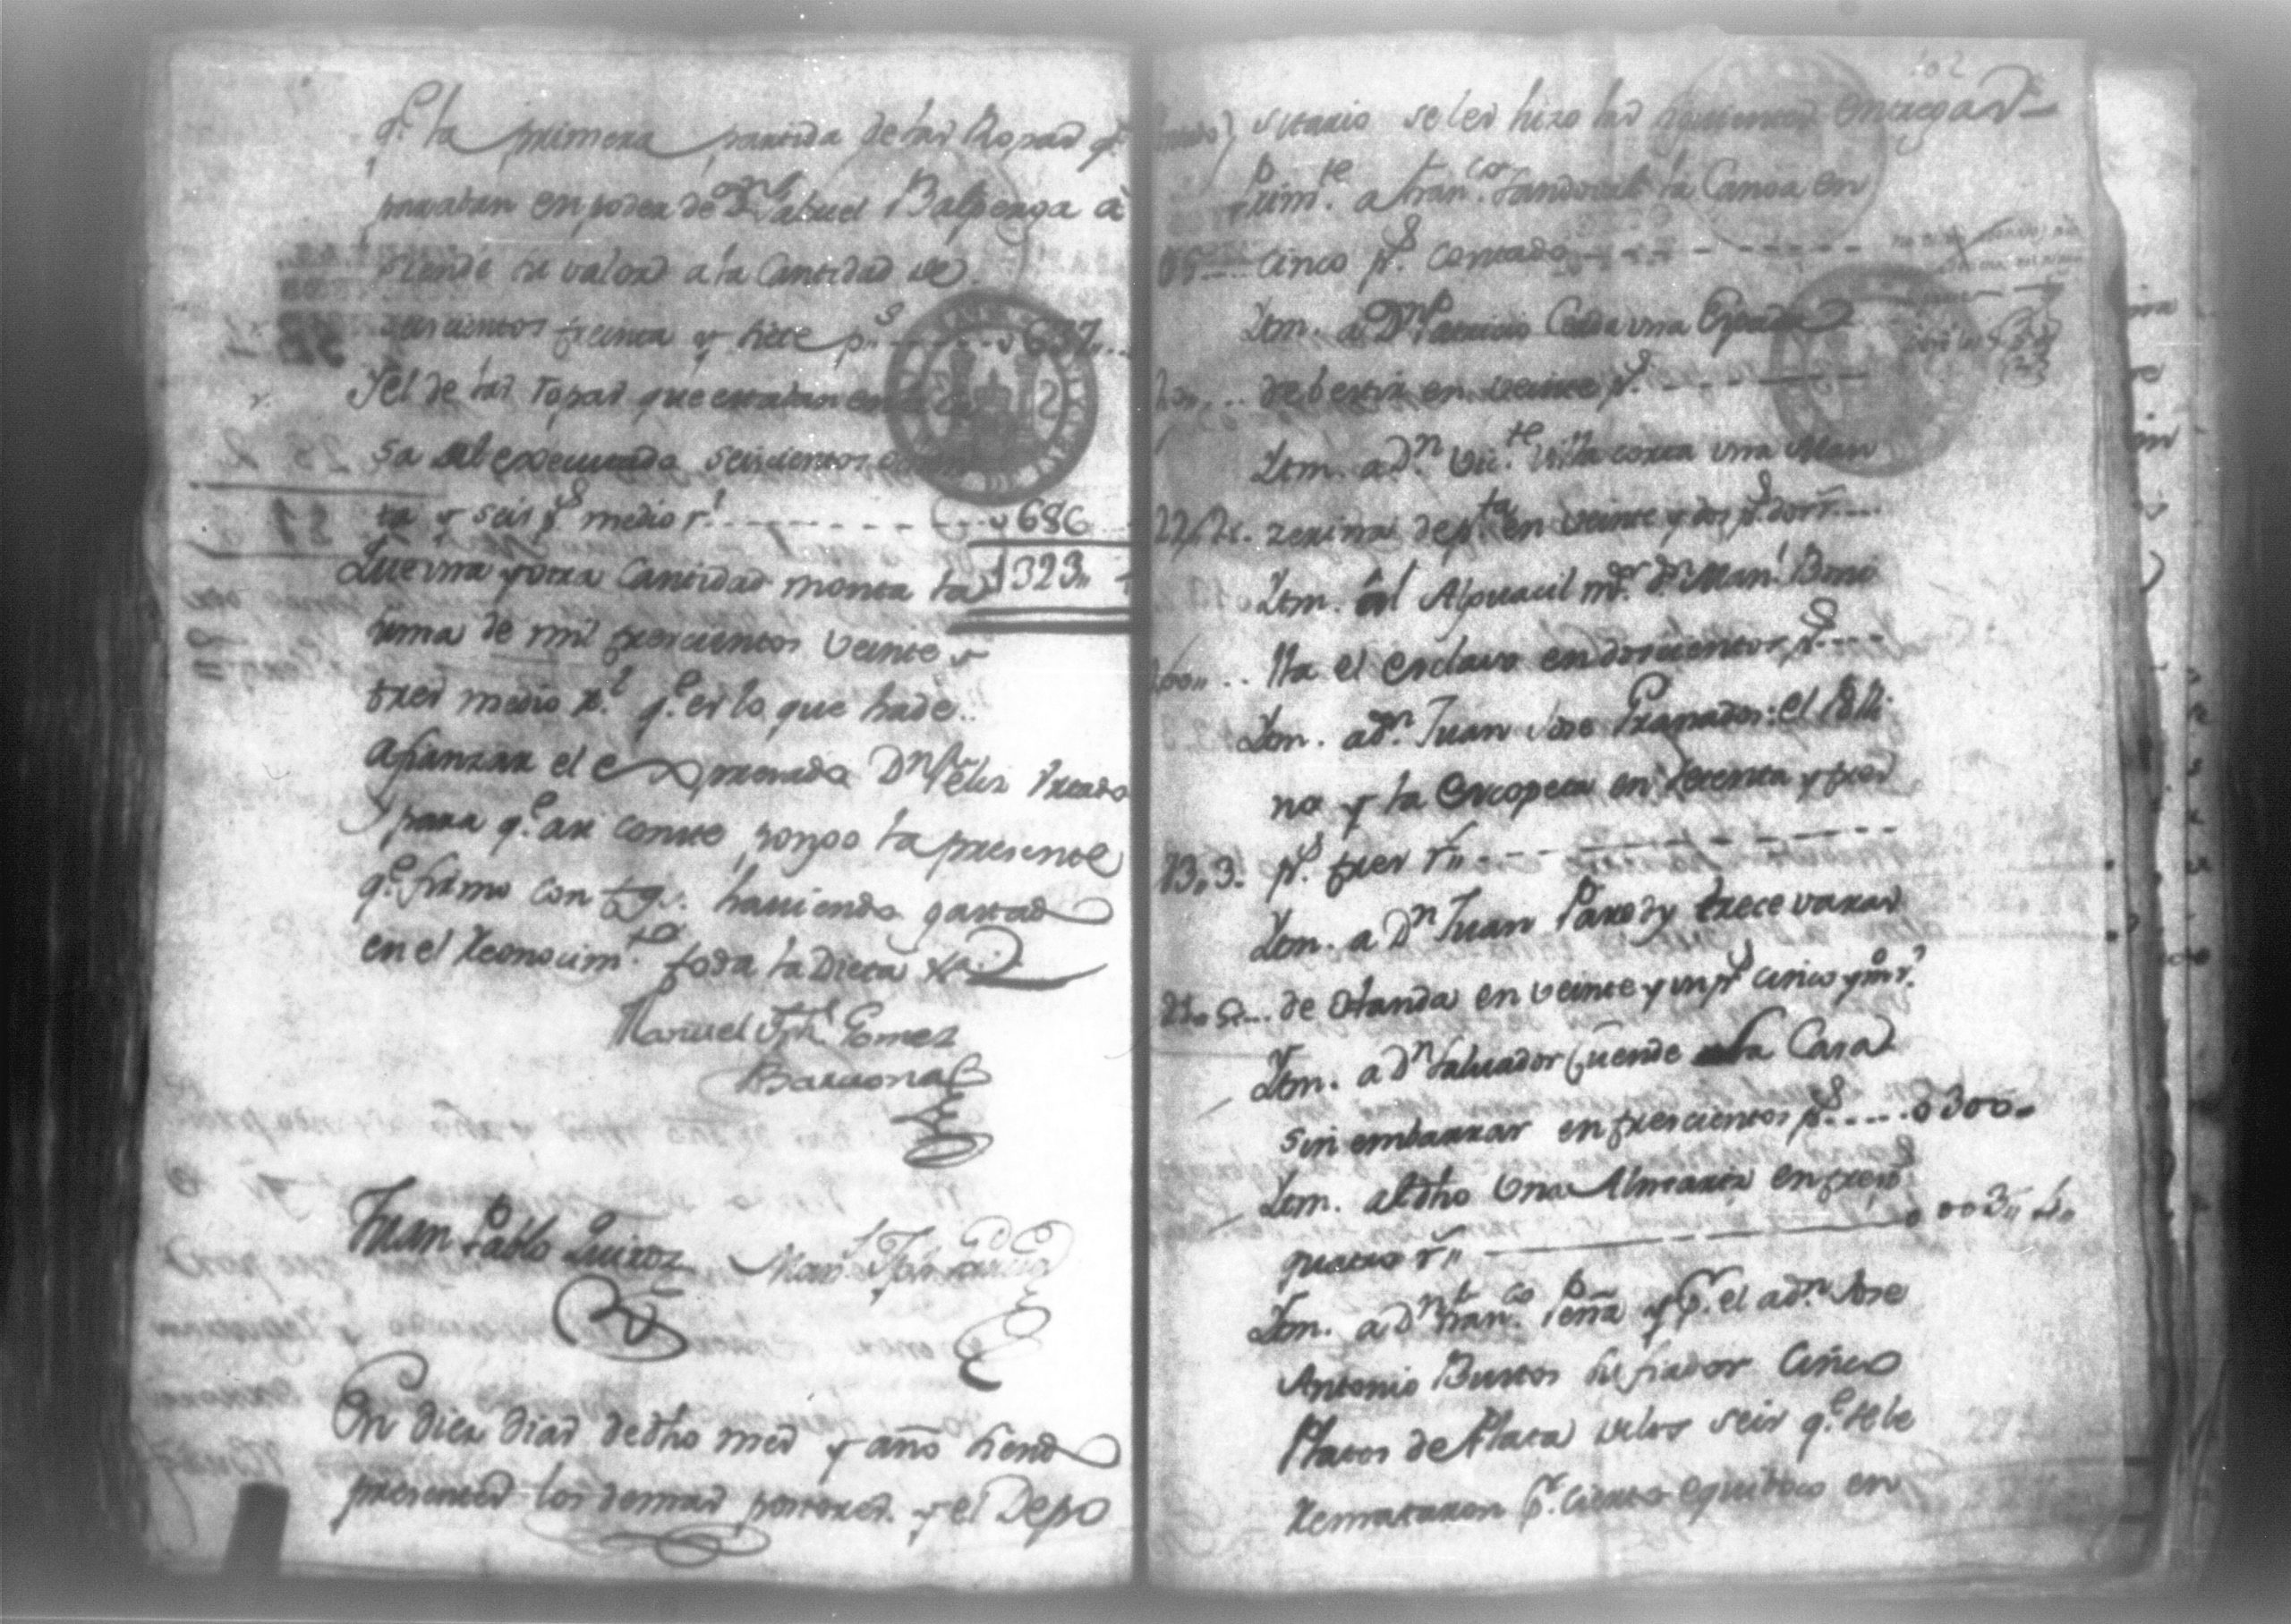 q.e la primera partida de las Ropas q.e
paraban en poder de D.n Manuel Balsenga a
siende su valor a la Cantidad de
seiscientos treinta y siete p.s ------ v 637,,
Y el de las ropas que estaban en la Ca
sa del executado seiscientos ochen
ta y seis p.s medio r.l ------ v 686
Que una y otra Cantidad monta la 1323,,
suma de mil trescientos veinte y
tres medio r.l q.e es lo que hade
afianzar el expresado D.n Felis Prado
Y para q.e asi conste, pongo la presente
q.e firmo con tg.s haviendo gastad
en el Reconocim.to toda la Dieta
Manuel Jph. Gomez
Barrona
Juan Pablo Quiroz Man.l Jph Garcia
En diez dias de dho mes y año siend
presentes los demas postores y el Depo
102
sitario se les hizo las siguientes entregas
Prim.te a Fran.co Sandoval la Canoa en
05 ---- cinco p.s contado
Itm. a D.n Patricio Cerda una Espada
20,, ... de bestir en veinte p.s
Itm. a D.n Vic.te Villa corta una Man
22,, 2. zerina de p.ta en veinte y dos p.s dos r.s
Itm. al Alguacil m.or D.n Man.l Boni
200,, .. lla el esclavo en doscientos p.s
Itm. a D.n Juan Jose Granados el Polli
no y la escopeta en setenta y tres
73,, 3. p.s tres r.s
Itm. a D.n Juan Parody trece varas
21,, 5 --- de Olanda en veinte y un p.s cinco y m.o r.l
Itm. a D.n Salvador Guende la Casa
sin embarrar en trescientos p.s ---- 0300,,
Itm. al dho Una Almarta en tres
quatro r.s 003,, 4,,
Itm. a D.n Fran.co Peña y p.r el a D.n Jose
Antonio Bustos su fiador Cinco
Platos de Plata de los seis q.e se le
Remataron p.r cierto equiboco en